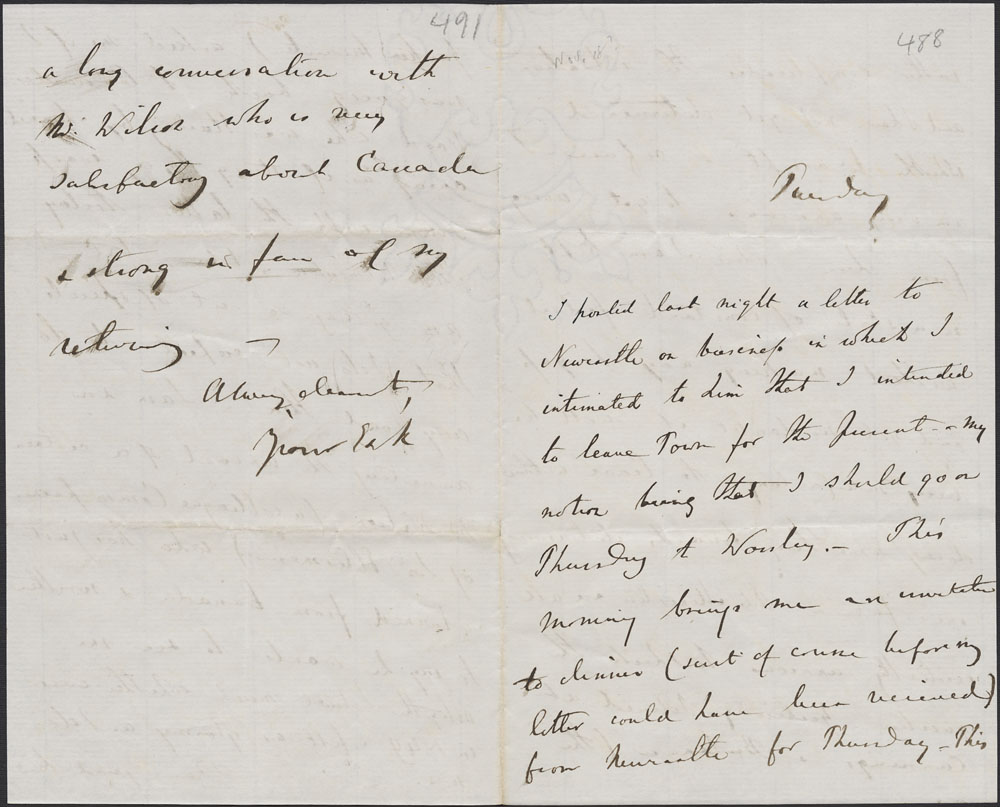 491
a long conversation with
Mr. Wilson who is very
satisfactory about Canada
& strong in favr of my
returning —
Always dearest,
Your E & K
488
Tuesday
I posted last night a letter to
Newcastle on business in which I
intimated to him that I intended
to leave Town for the present – my
notion being that I should go on
Thursday to Worsley. – This
morning brings me an invitation
to dinner (sent of course before my
letter could have been recieved)
from Newcastle for Thursday – This